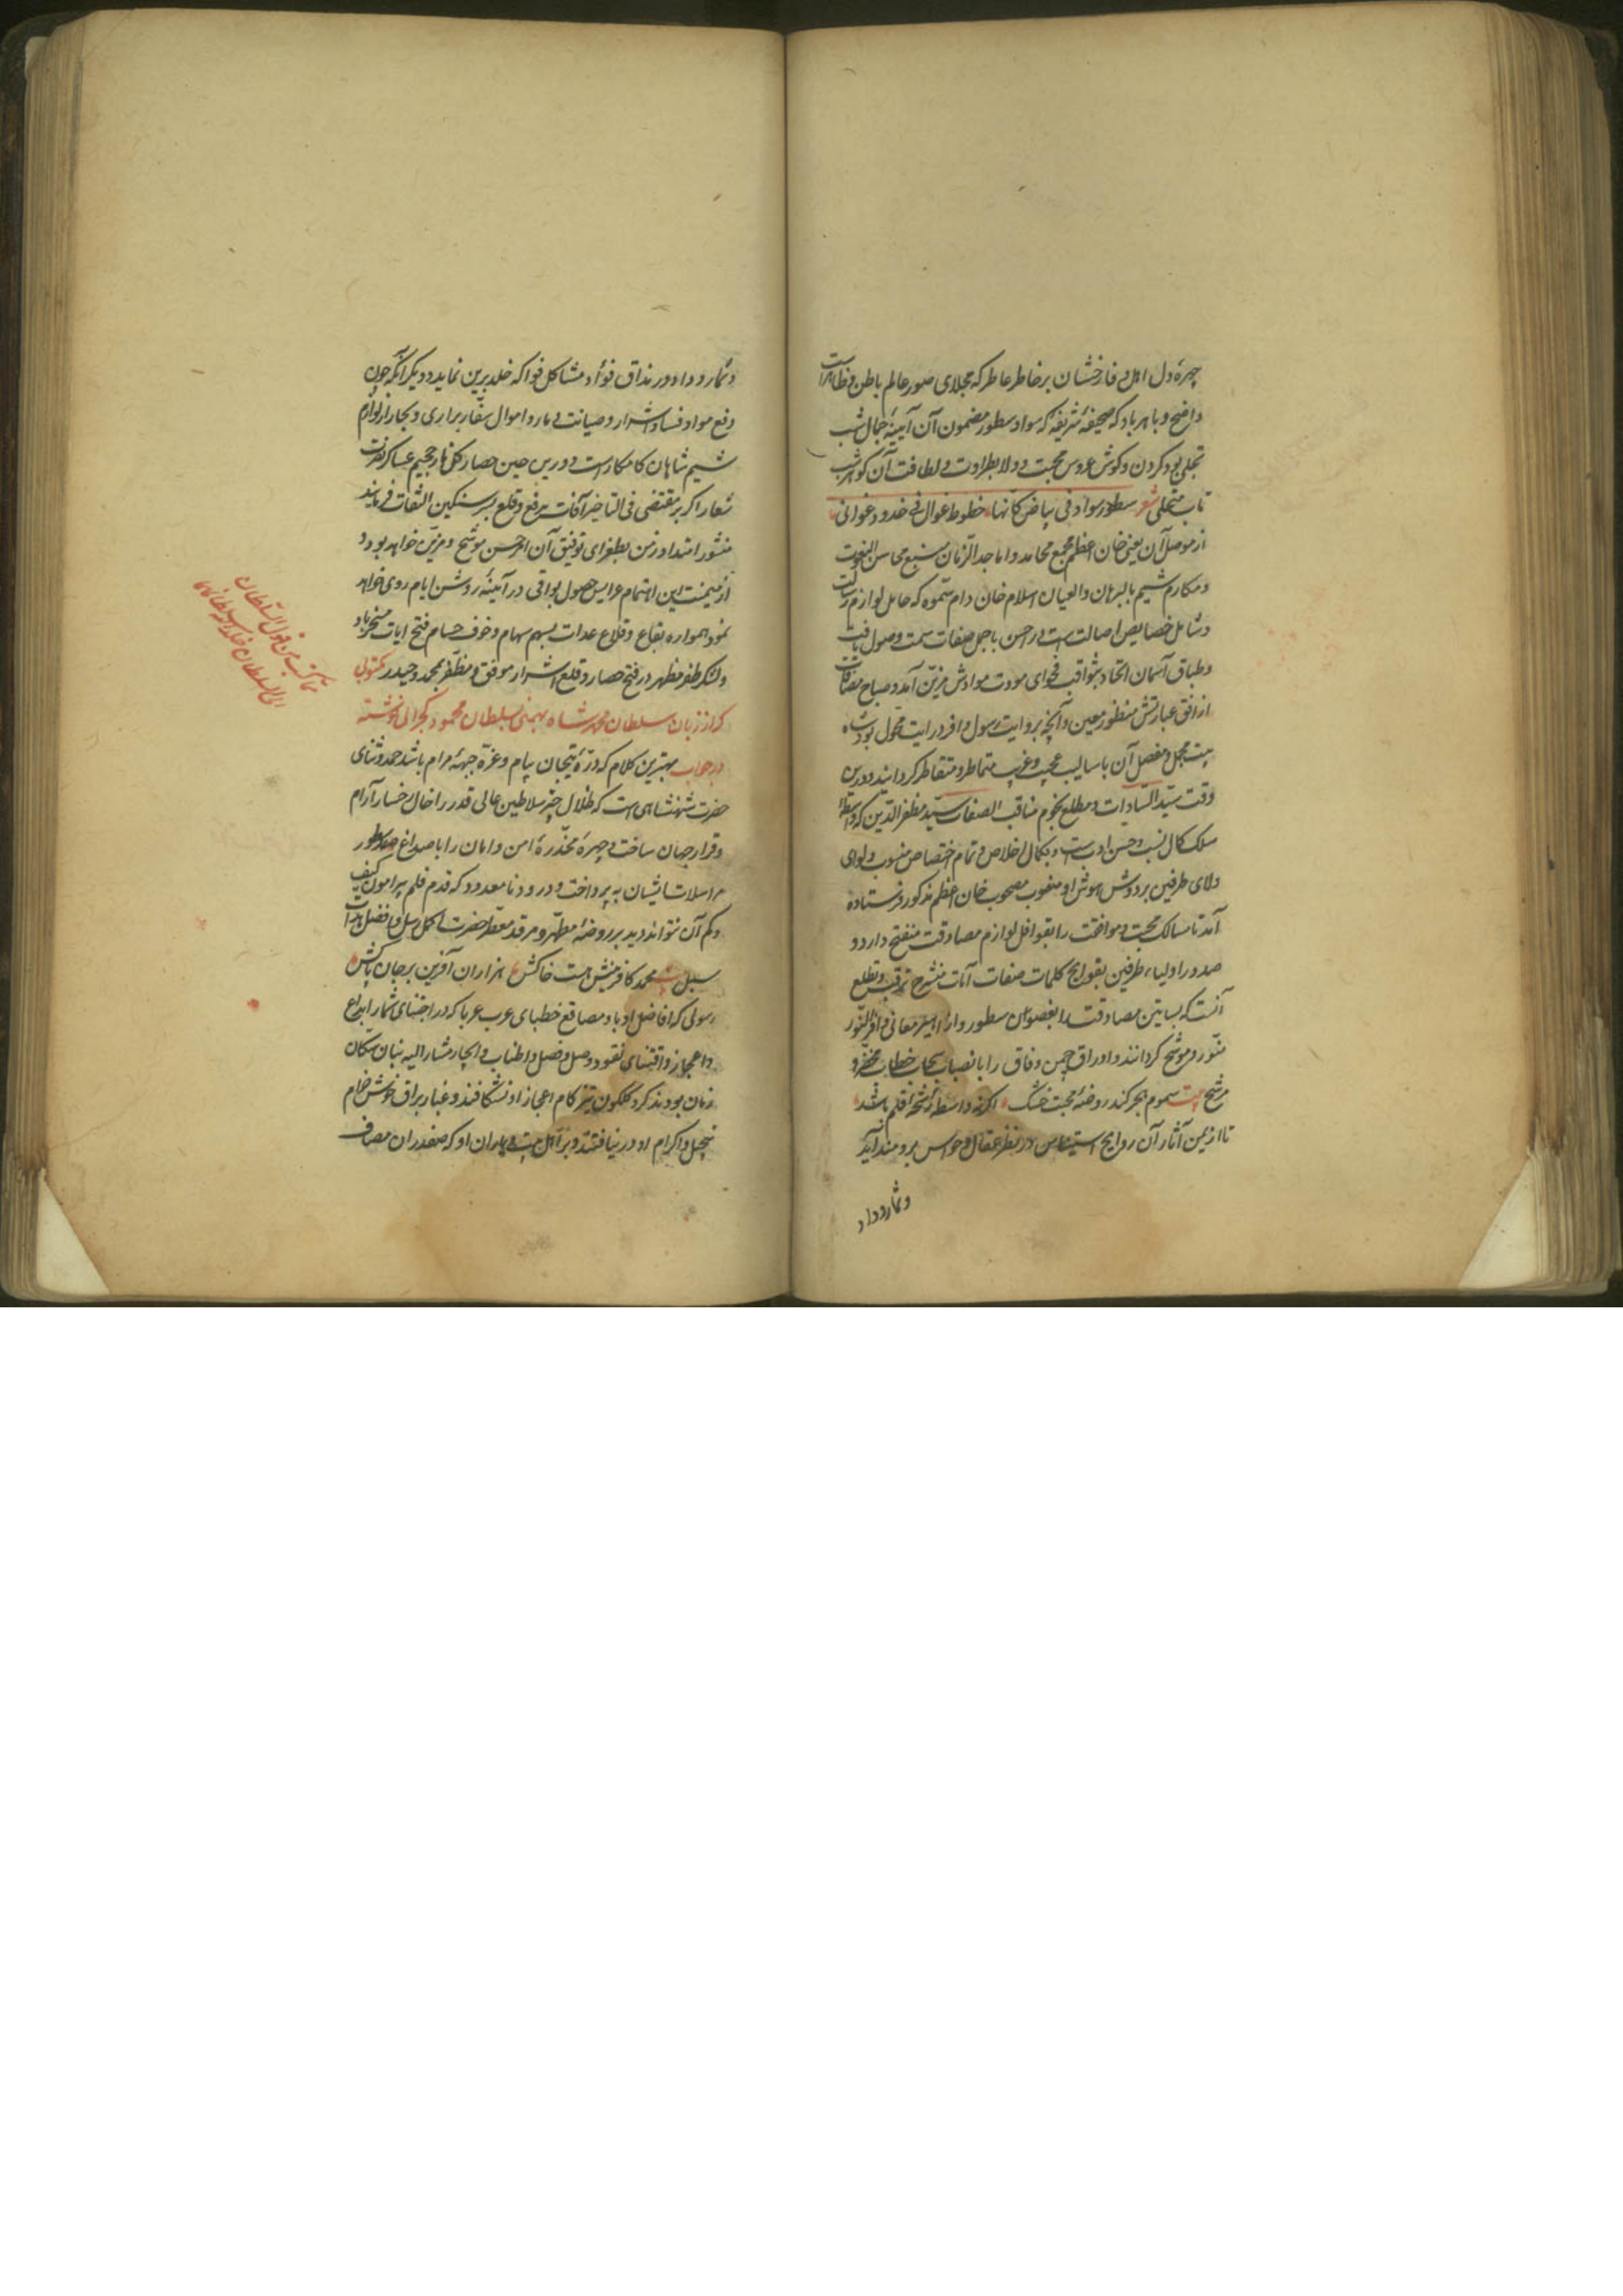 چهرهٔ دل اهل وفا رخشان بر خاطر عاطر که مجلای صور عالم باطن و ظاهر است
واضح و باهر باد که صحیفهٔ شریفه که سواد سطور مضمون آن آیینهٔ جمال شب
تجلی بود کردن و کوش عروس محبت و ولا بطراوت و لطافت آن کوهر شب
تاب متحلی شعر سطور سواد فی بیاض کانها خطوط غوال فی خدود غوانی
از موصل آن یعنی خان اعظم مجمع محامد و اماجد الزمان منبع محاسن النعوت
و مکارم شیم بالبرهان والعیان اسلام خان دام سموه که حامل لوازم رسالت
و شامل خصایص اصالت است در احسن باجمل صفات سمت وصول یافت
و طباق آسمان اتحاد بثواقب فحوای مودت موادش مزین آمد و صباح مصافات
از افق عبارتش منظور معین و آنچه بروایت رسول وافر درایت محول بود شاه
بیت مجمل و مفصل آن باسالیب عجیب و غریب متماطر و متقاطر کردانید و درین
وقت سید السادات و مطلع نجوم مناقب الصفات سید مظفر الدین که واسطهٔ
سلک کمال نسب و حسن ادب است و بکمال اخلاص و تمام اختصاص منسوب و لوای
ولای طرفین بر دوش هوش او منصوب مصحوب خان اعظم مذکور فرستاده
آمد تا مسالک محبت و موافقت را بقوافل لوازم مصادقت منفتح دارد و
صدور اولیاء طرفین بفوایح کلمات صفات آیات منشرح ترقب و تطلع
آنست که بساتین مصادقت را بغصون سطور و ازاهیر معانی وافر النور
منور و موشح کردانند و اوراق چمن وفاق را بانصباب سحاب خطاب مخضر و
مرشح بیت سموم هجر کند روضهٔ محبت خشک اکر نه واسطهٔ رشحهٔ قلم باشد
تا از یمن آثار آن روایح استیناس در نظر عقل و حواس برومند آید
و ثمار وداد
و ثمار وداد در مذاق فؤاد مشاکل فواکه خلد برین نماید و دیکر آنکه چون
دفع مواد فساد اشرار و صیانت دماء و اموال سفار براری و بحار از لوازم
شیم شاهان کامکار است درین حین حصار کفار جحیم عساکر نصرت
شعار اکر بر مقتضی فی التاخیر آفات برفع و قلع سنکین التفات فرمایند
منشور امتداد زمن بطغرای توفیق آن امر حسن موشح و مزین خواهد بود و
از میمنت این اهتمام عرایس حصول بواقی در آیینهٔ روشن ایام روی خواهد
نمود همواره بقاع و قلاع عدات بسهم سهام و خوف حسام فتح آیات مسخر باد
و لشکر ظفر مظهر در فتح حصار و قلع اشرار موفق و مظفر بمحمد و حیدر مکتوبی
که از زبان سلطان محمد شاه بهمنی بسلطان محمود کجراتی نوشته
در جواب بهترین کلام که درهٔ تیجان پیام و غرهٔ جبههٔ مرام باشد حمد و ثنای
حضرت شهنشاهی است که ظلال چتر سلاطین عالی قدر را خال خسار آرام
و قرار جهان ساخت و چهرهٔ مخدرهٔ امن و امان را باصداغ سطور
مراسلات ایشان به پرداخت و درود نا معدود که قدم قلم پیرامون کیف
و کم آن نتواند دوید بر روضهٔ مطهر و مرقد معطر حضرت اکمل رسل و افضل هدات
سبل بیت محمد کافرینش هست خاکش هزاران آفرین بر جان پاکش
رسولی که افاضل ادبا و مصاقع خطبای عرب عربا که در اجتنای ثمار ابداع
و اعجاز و اقتنای نقود وصل و فصل و اطناب و ایجاز مشار الیه بنان سکان
زمان بودند کرد کلکون تیز کام اعجاز او نشکافند و غبار براق خوش خرام
تبجیل و اکرام او در نیافتند و بر آل بیت و یاران او که صفدران مصاف
مما کتب من قول السلطان
الی السلطان خلد الله سلطانهما